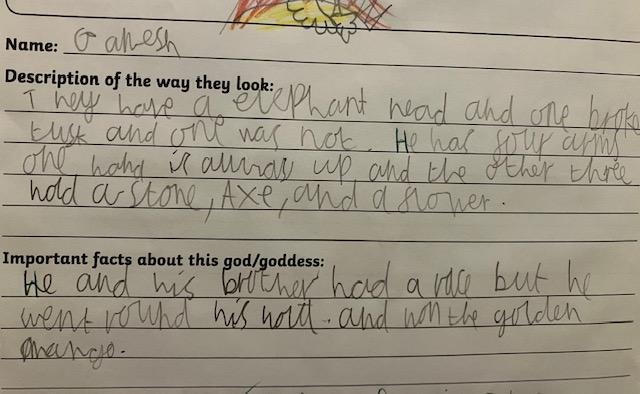 Name: Ganesh
Description of the way they look:
They have a elephant head and one broke
tusk and one was not. He has four arms
one hand is always up and the other three
hold a stone, Axe, and a flower.
Important facts about this god/goddess:
He and his brother had a race but he
went round his . and won the golden
mango.